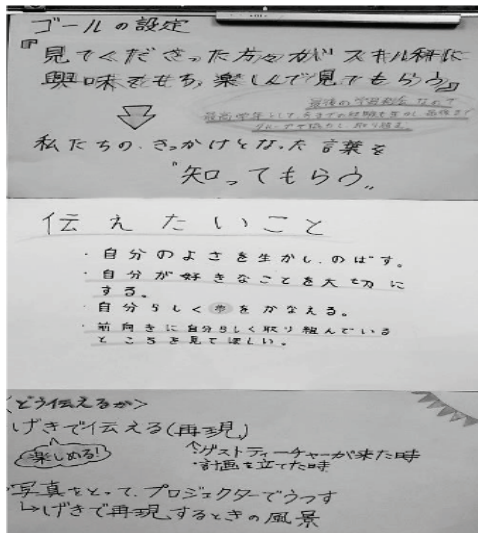 ゴールの設定
『見てくださった方々がスキル科に
興味をもち、楽しんで見てもらう』
最後の学習発表会なので
最高学年として今までの経験を生かし最後まで
グループで協力し、取り組む。
私たちの、きっかけとなった言葉を
"知ってもらう"
伝えたいこと
・自分のよさを生かし、のばす。
・自分が好きなことを大切に
する。
・自分らしく夢をかなえる。
・前向きに自分らしく取り組んでいる
ところを見てほしい。
<どう伝えるか>
げきで伝える(再現)
楽しめる!
↑ゲストティーチャーが来た時
・計画を立てた時
・写真をとって、プロジェクターでうつす
↳げきで再現するときの風景